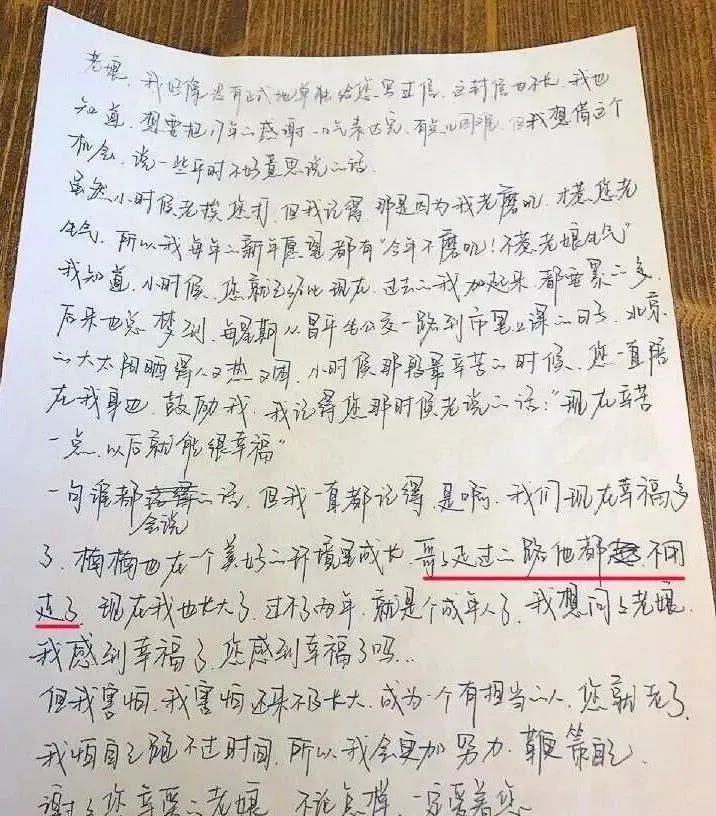 老娘，我好像没有正式地单独给您写过信，这封信也不长，我也
知道，想要把17年的感谢一口气表达完，有点儿困难，但我想借这个
机会，说一些平时不好意思说的话。
虽然小时候老挨您打，但我记得，那是因为我老磨叽，才惹您老
生气，所以我每年的新年愿望都有“今年不磨叽！不惹老娘生气”
我知道，小时候，您就已经比现在、过去的我加起来，都要累的多，
后来也总梦到，每星期从昌平坐公交一路到市里上课的日子，北京
的大太阳晒得人又热又困，小时候那段最辛苦的时候，您一直陪
在我身边，鼓励我，我记得您那时候老说的话：“现在辛苦
一点，以后就能很幸福”
一句谁都会说的话，但我一直都记得，是啊，我们现在幸福多
了，楠楠也在一个美好的环境里成长，哥哥走过的路他都不用
走了，现在我也长大了，过不了两年，就是个成年人了，我想问问老娘，
我感到幸福了，您感到幸福了吗…
但我害怕，我害怕还来不及长大，成为一个有担当的人，您就老了，
我怕自己跑不过时间，所以我会更加努力，鞭策自己，
谢谢您辛苦的老娘，不论怎样，一定爱着您